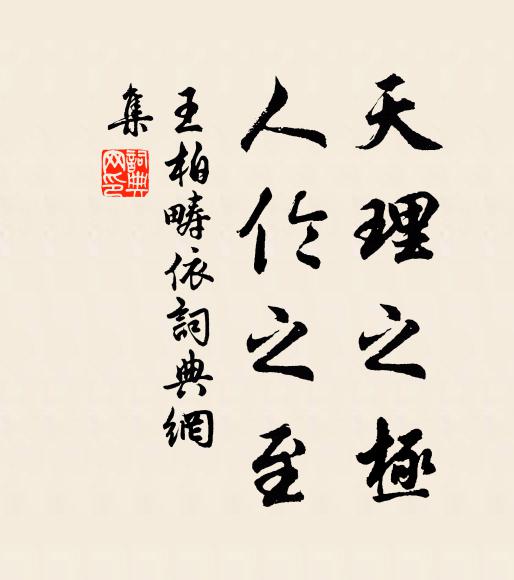 天理之極
人伦之至
王柏疇依詞典網
集
詞典
网印